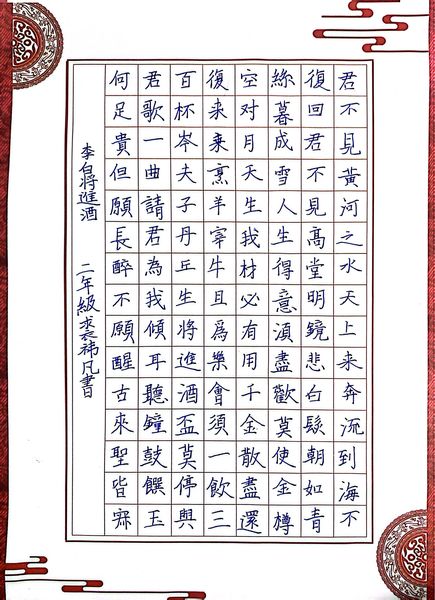 君不見黃河之水天上来奔流到海不
復回君不見高堂明鏡悲白髮朝如青
絲暮成雪人生得意湏盡歡莫使金樽
空对月天生我材必有用千金散盡還
復来乗烹羊宰牛且爲樂會須一飲三
百杯岑夫子丹丘生將進酒盃莫停與
君歌一曲請君為我傾耳聽鐘鼓饌玉
何足貴但願長醉不願醒古來聖皆
李白將進酒 二年級裘祎凡書